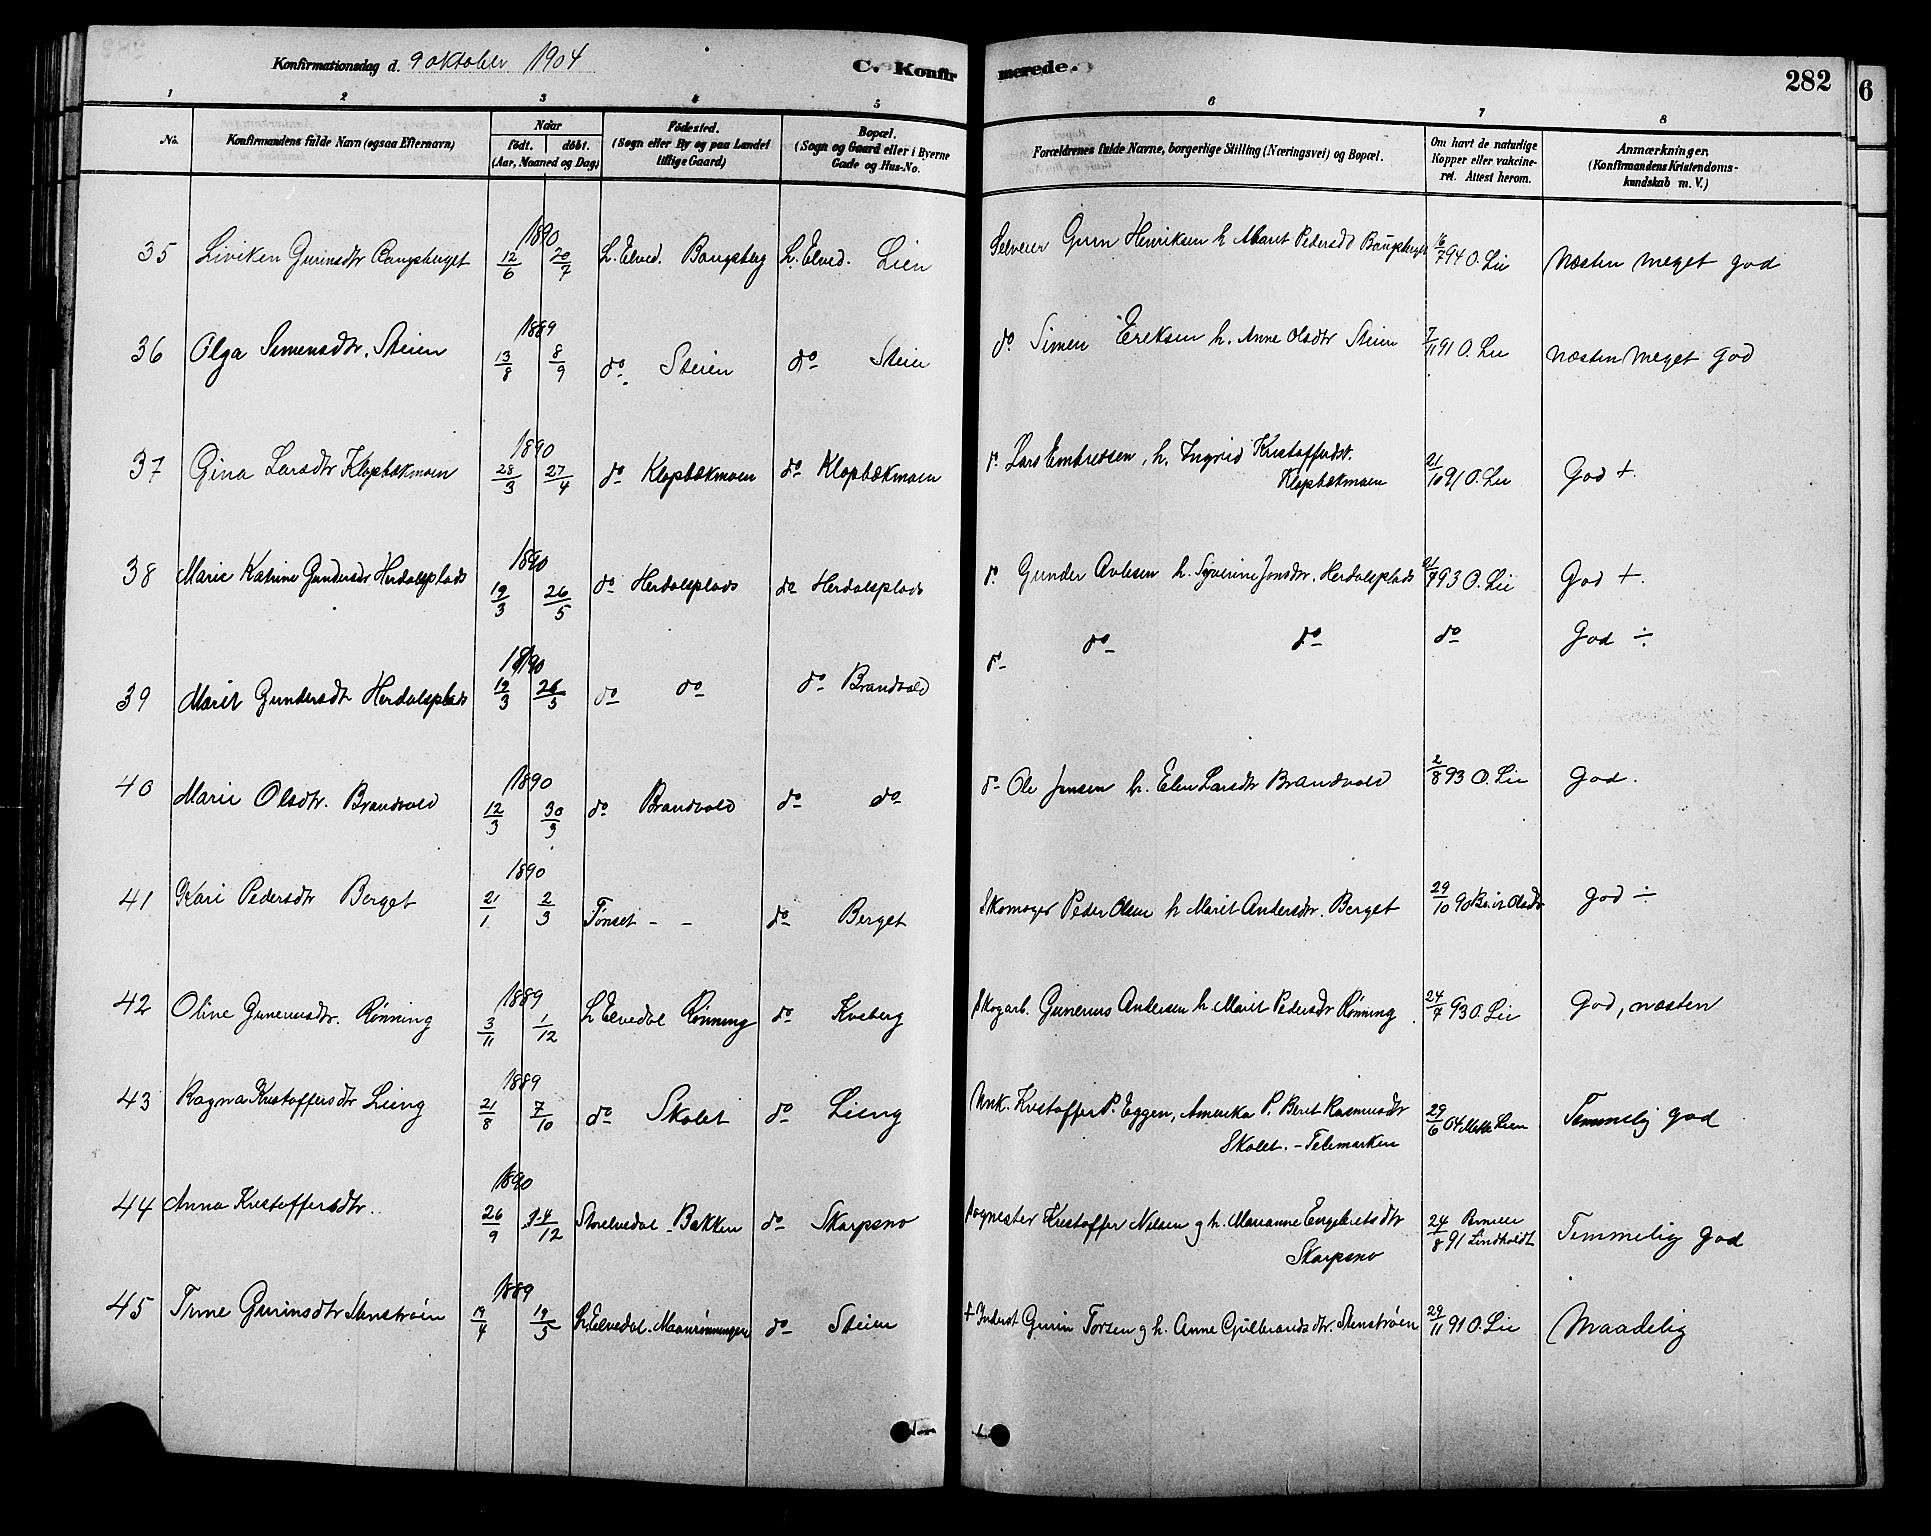 Konfirmationsdag d. 9 oktober 1904
C. Konfirmerede.
282
6
1 2 3 4 5 6 7 8
No. Konfirmandens fulde Navn (ogsaa Efternavn) Naar Födt. döbt. (Aar, Maaned og Dag) Födested. (Sogn eller By og paa Landet tillige Gaard) Bopæl. (Sogn og Gaard eller i Byerne Gade og Hus-No. Forældrenes fulde Navne, borgerlige Stilling (Næringsvei) og Bopæl. Om havt de naturlige Kopper eller vakcineret. Attest herom. Anmærkninger. (Konfirmandens Kristendomskundskab m. V.)
35 Liviken Gurinsdtr Baugsberget 1890 12/6 20/7 L. Elved. Baugsberg L. Elved. Lien Selveier Gurin Henriksen h. Maret Pedersdt Baugsberget 16/7 94 O. Lie Næsten meget god
36 Olga Simensdtr. Steien 1889 13/8 8/9 do Steien do Steien do Simen Eriksen h. Anne Olsdtr Steien 7/11 91 O. Lie næsten meget god
37 Gina Larsdtr Klopbækmoen 1890 28/3 27/4 do Klopbækmoen do Klopbækmoen do Lars Embretsen, h. Ingrid Kristoffersdt.
Klopbækmoen 21/10 91 O. Lie God +.
38 Marie Katrine Gundersdtr Herdalsplads 1890 19/3 26/5 do Herdalsplads do Herdalsplads do Gunder Avlesen h. Syverine Jonsdtr. Herdalsplads 93 O. Lie God +.
39 Marit Gundersdtr Herdalsplads 1890 19/3 26/5 do do do Brandvold do do do do God ÷
40 Marie Olsdtr. Brandvold 1890 12/3 30/3 do Brandvold do do do Ole Jonsen h. Elen Larsdtr Brandvold 2/8 93 O. Lie God.
41 Kari Pedersdtr Berget 1890 21/1 2/3 Tönset - - do Berget Skomager Peder Olsen h Marit Andersdtr. Berget 29/10 90 Olsdtr God ÷
42 Oline Gunerusdtr. Rønning 1889 3/11 1/12 L Elvedal Rønning do Kveberg Skogarb. Gunerus Andersen h Marit Pedersdtr Rønning 24/7 93 O. Lie God, næsten
43 Ragna Kristoffersdtr Lieng 1889 21/8 7/10 do Skolet do Lieng Unk. Kristoffer P. Eggen, Amerika P. Beret Rasmusdtr
Skolet. - Telemarken 29/6 04 Lien Temmelig god
44 Anna Kristoffersdtr. 1890 26/9 14/12 Storelvedal - Bakken do Skarpsno Kristoffer Nilsen g h. Marianne Engebretsdtr
Skarpsno 24/8 91 Lindholdt Temmelig god
45 Trine Gurinsdtr Stenstrøen 1889 19/4 19/5 L. Elvedal. Maanrønningen do Steien + Inderst Gurin Torsen g h. Anne Gulbrandsdtr. Stenstrøen 29/11 91 O. Lie Maadelig